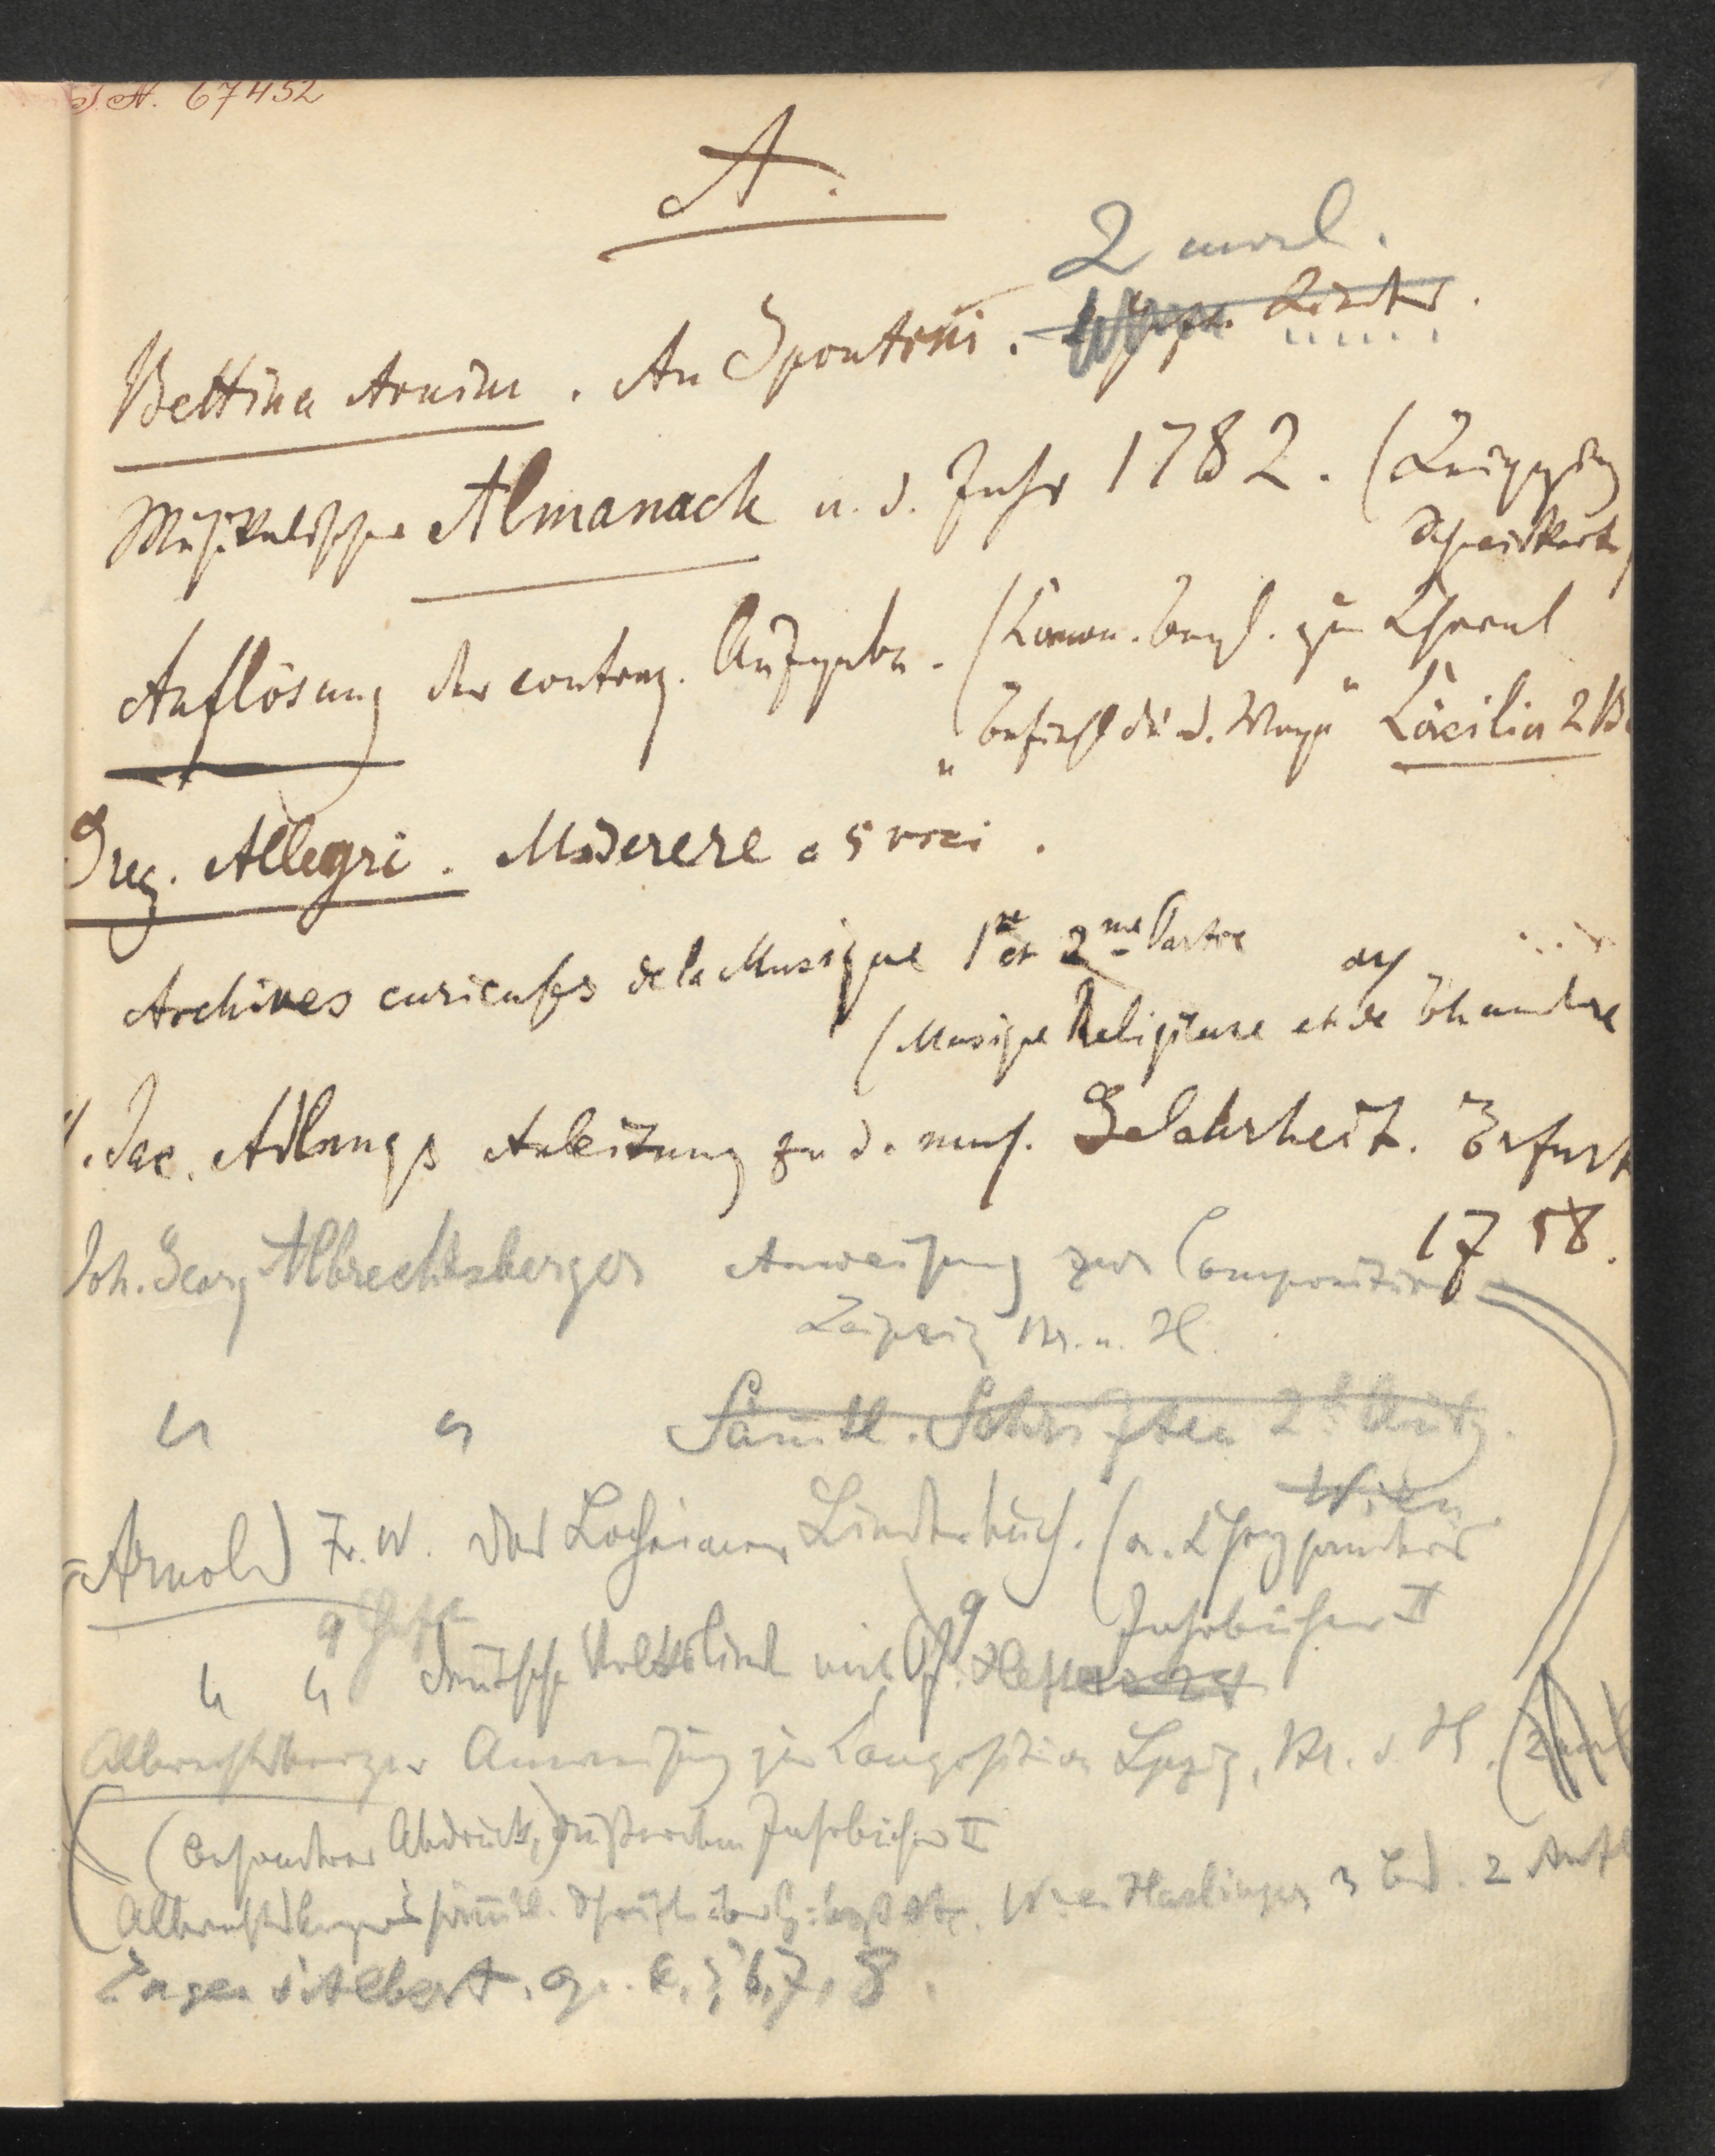 J. N. 67452
A.
2 mal.
Bettina Arnim. An Spontini. Lieder.
Musikalischer Almanach a. d. Jahr 1782. (Leipzig
Schwickert)
Auflösung der contrap. Aufgabe. (Canon. zum Choral
„Befiehl du d. Wege“ Cäcilia 2 B
Greg. Allegri. Miserere a 5 voci.
Archives curieuses de la Musique 1re et 2me Partie
(Musique Religieuse et de Chambre
Jac. Adlungs Anleitung zu d. mus. Gelahrheit. Erfurt
1758.
Joh. Georg Albrechtsberger Anweisung zur Composition
Leipzig Br. u. H.
" " Sämtl. Schriften 2t Aufl.
Wien.
Arnold Fr. W. Das Locheimer Liederbuch. (a. Chrysanders
Jahrbücher II
9 Hefte
" " Deutsche Volkslieder mit Pf. 9 Hefte
Albrechtsberger Anweisung zur Composition Lpzig, Br. u. H.
(besonderer Abdruck, außerdem Jahrbücher II
Albrechtsberger's sämtl. Schriften Wien Haslinger 3 Bd. 2 Aufl
Eugen d'Albert. op. 6, 7, 8.